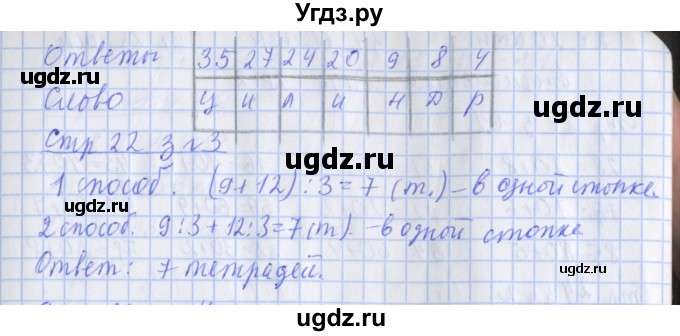 Угдз.ру
Ответы 35 27 24 20 9 8 4
Слово Ц И Л И Н Д Р
Стр 22 з №3
1 способ. (9+12):3=7 (т.) – в одной стопке
2 способ. 9:3+12:3=7(т). – в одной стопке
Ответ: 7 тетрадей.
ugdz.ru
ugdz.ru
ugdz.ru
ugdz.ru
ugdz.ru
ugdz.ru
ugdz.ru